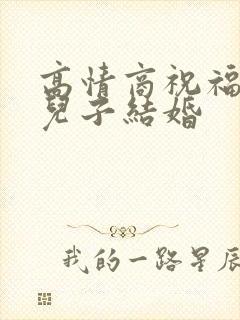 高情商祝福
兒子結婚
我的一路星辰